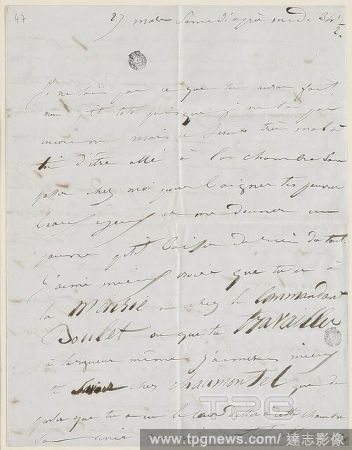 47
27 mars Samedi après midi 3h 1/2
je ne sais pas ce que tu auras fait
mais je serais très mal à
toi d'être allé à la chambre sans
passer chez moi pour baigner tes pauvres
beaux yeux et me donner un
pauvre petit baiser de rien du tout.
J'aime mieux croire que tu es à
la Mairie ou chez le Commandant
Doulet ou que tu travailles
à la rigueur même j'aimerais mieux
te savoir chez Chaumontel que de
penser que tu as eu le cœur d'aller à la chambre
sans venir
TPG
www.tpgnews.com / 達志影像